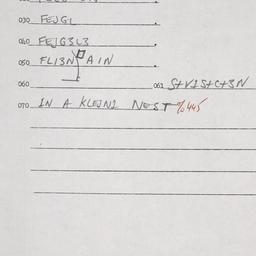 030 FEJGL
040 FEJG3L3
050 FLI3N AIN
060 061 S+VIS+C+3N
070 IN A KLEJNI NEST %445